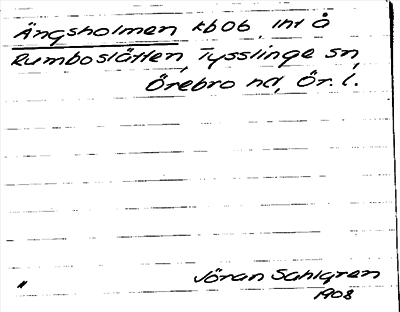 Ängsholmen kbob. Int å
Rumboslätten, Tysslinge sn,
Örebro hd, Ör. l.
" Jöran Sahlgren
1908